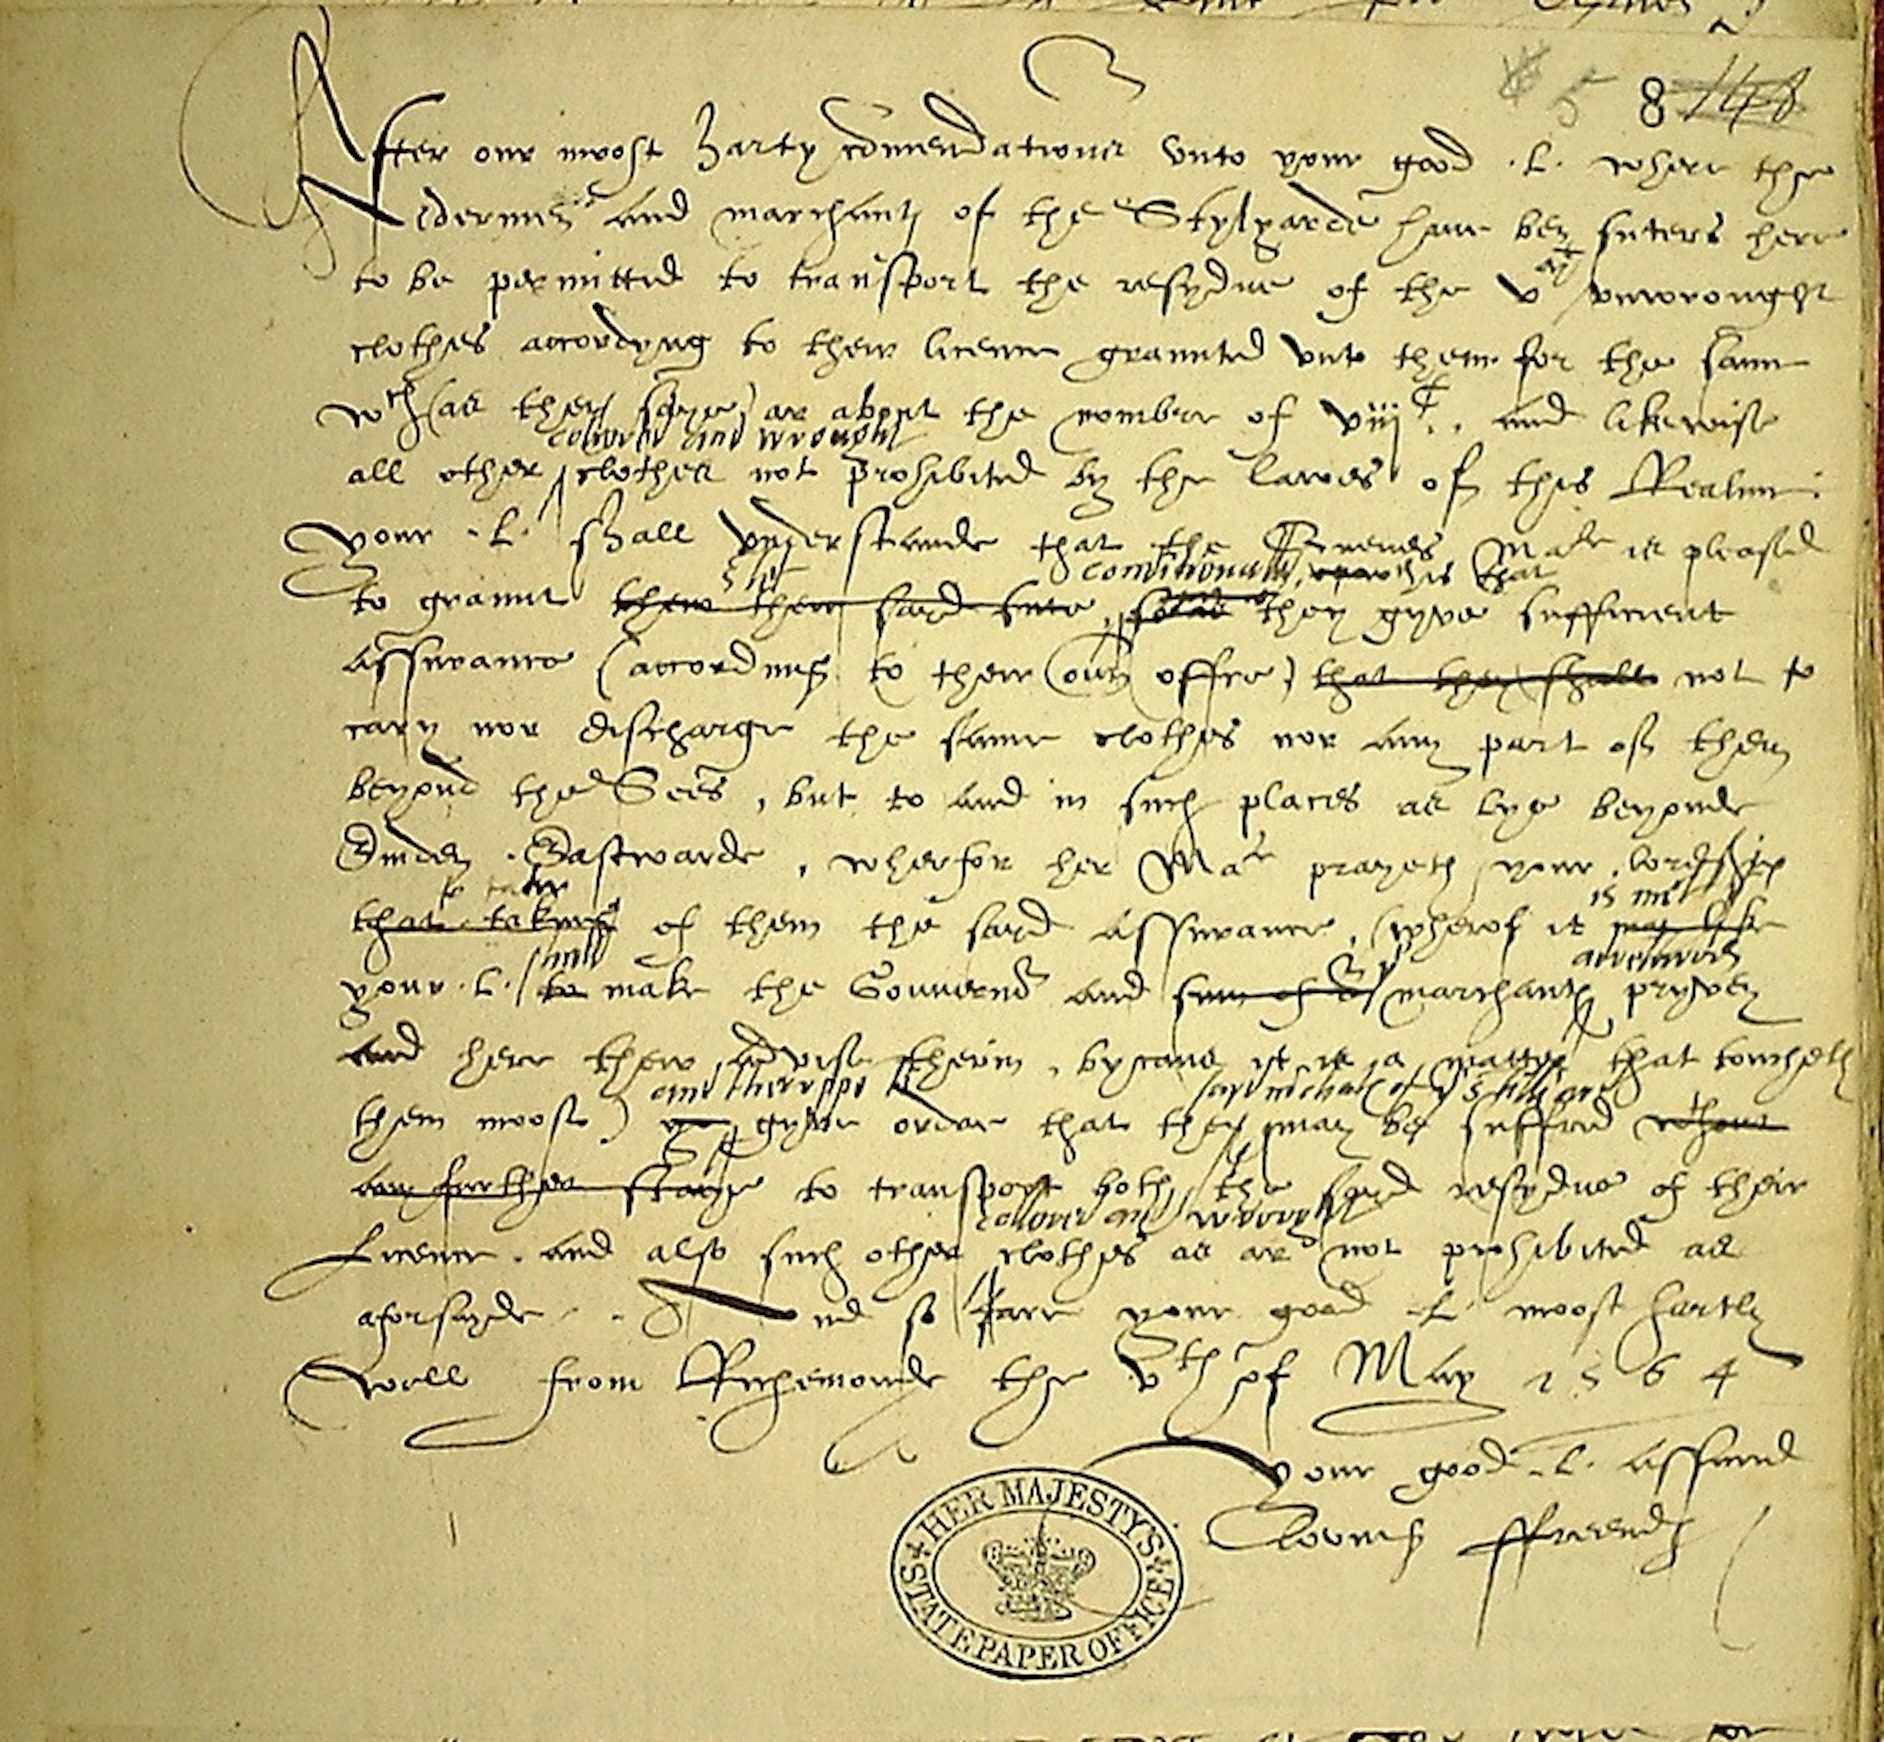 8 148
After our most harty com̄endations vnto your good .L. where the
Aldermen and marchants of the Stylyarde haue ben suters here
to be permitted to transport the resydue of the v unwrought
clothes accordyng to their licence graunted vnto them for the same
wch (as they saye) ar about the nombre of viijC .. and likewise
colored and wrought
all other clothes not prohibited by the lawes of this Realme :
your .L. shall vnderstande that the Quenes Matie is pleased
conditionally, this that
to graunt their said sute, so as they gyve sufficient
assurance (according to their own offre) that they shall not to
cary nor discharge the same clothes nor any part of them
beyond the Sees, but to and in such places as lye beyonde
Emden Eastwarde, wherfor her Matie prayeth your lordship
to take is mēt
that taking of them the said assurance, (wherof it may like
shall adventurers
your .L. to make the Gouuernor and marchants pryvey
and here their advise therin, bycause it is a matter that toucheth
and theruppon
them moost) gyue order that they may be suffred without
any further staye to transport both the said resydue of their
colored and wrought
licence. and also such other clothes as ar not prohibited as
aforsayde. And so fare your good .L. moost hartly
well from Richemonde the vth of May 1564
your good .L. assured
Loving ffreends
HER MAJESTY'S
STATE PAPER OFFICE